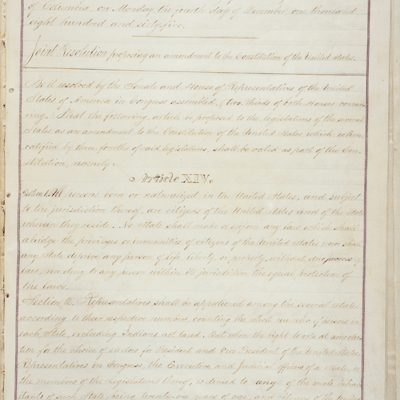 of Columbia, on Monday the fourth day of December one thousand
eight hundred and sixty-five.
Joint Resolution proposing an amendment to the Constitution of the United States.
Be it resolved by the Senate and House of Representatives of the United
States of America in Congress assembled, (two thirds of both Houses concurring
ring,) That the following article be proposed to the legislatures of the several
States as an amendment to the Constitution of the United States, which when
ratified by three fourths of said legislatures, shall be valid as part of the Con-
stitution, namely:
Article XIV.
Section 1. All persons born or naturalized in the United States, and subject
to the jurisdiction thereof, are citizens of the United States and of the State
wherein they reside. No State shall make or enforce any law which shall
abridge the privileges or immunities of citizens of the United States; nor shall
any State deprive any person of life, liberty, or property, without due process of
law, nor deny to any person within its jurisdiction the equal protection of
the laws.
Section 2. Representatives shall be apportioned among the several States
according to their respective numbers, counting the whole number of persons in
each State, excluding Indians not taxed. But when the right to vote at any elec-
tion for the choice of electors for President and Vice President of the United States,
Representatives in Congress, the Executive and Judicial officers of a State, or
the members of the Legislature thereof, is denied to any of the male inhabi-
tants of such State, being twenty-one years of age, and citizens of the